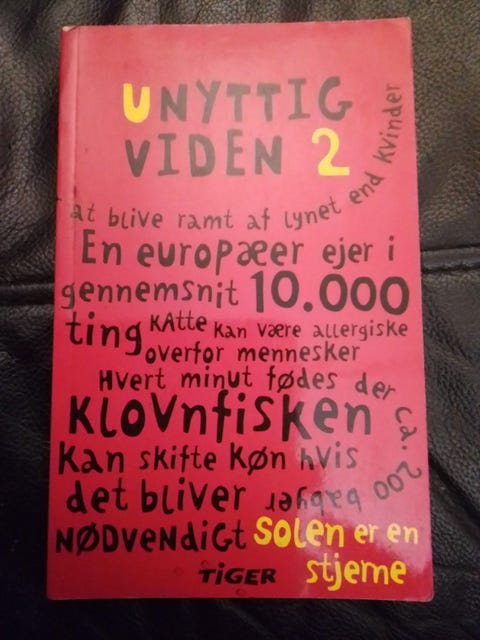 UNYTTIG
VIDEN 2
at blive ramt af lynet end kvinder
En europæer ejer i
gennemsnit 10.000
ting Katte kan være allergiske
overfor mennesker
Hvert minut fødes der ca. 200
babyer
Klovnfisken
kan skifte køn hvis
det bliver
nødvendigt Solen er en
stjerne
TIGER